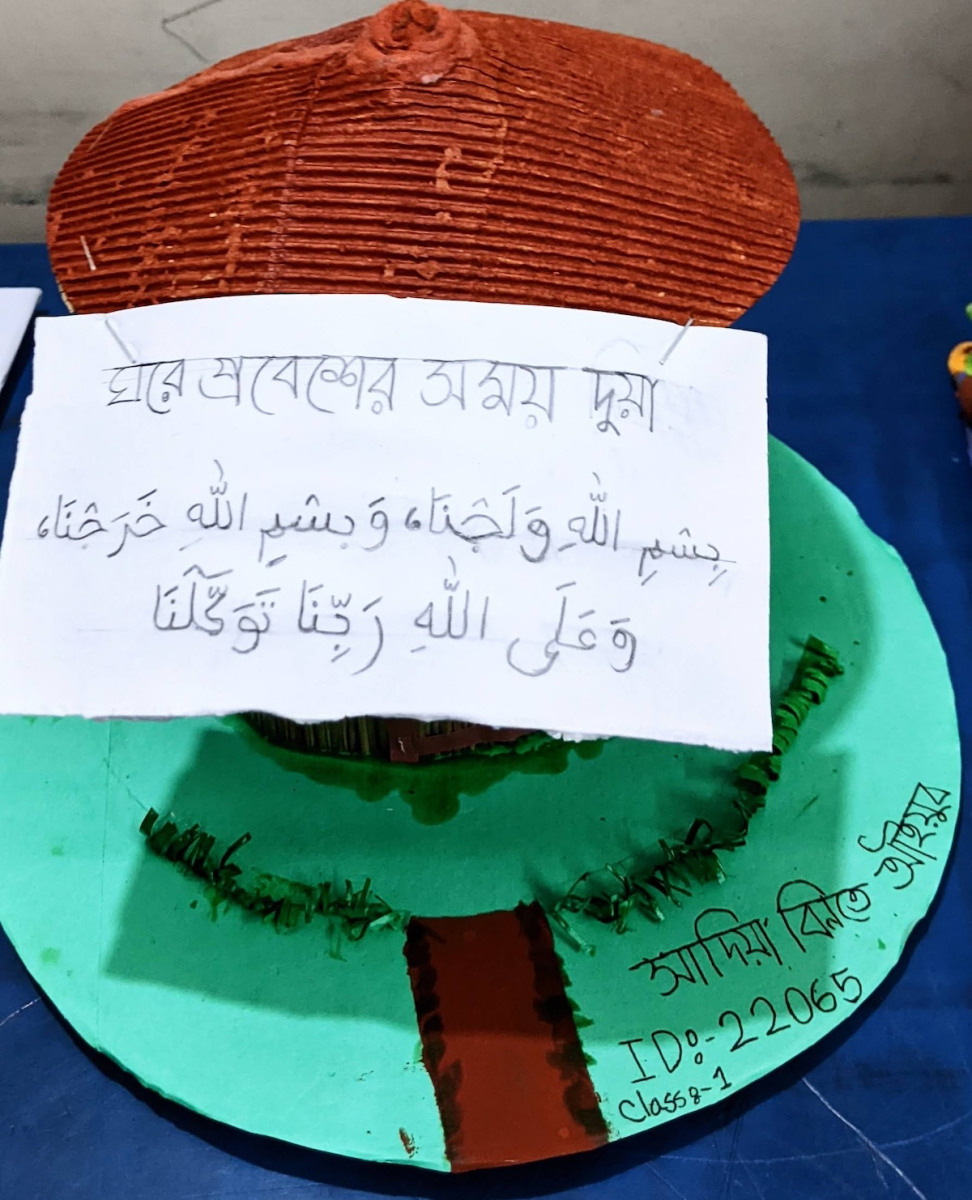 ঘরে প্রবেশের সময় দুয়া
بِسْمِ اللّٰهِ وَلَجْنَا، وَبِسْمِ اللّٰهِ خَرَجْنَا،
وَعَلَى اللّٰهِ رَبِّنَا تَوَكَّلْنَا
সাদিয়া বিনতে আইয়ুব
ID:-22065
Class:-1